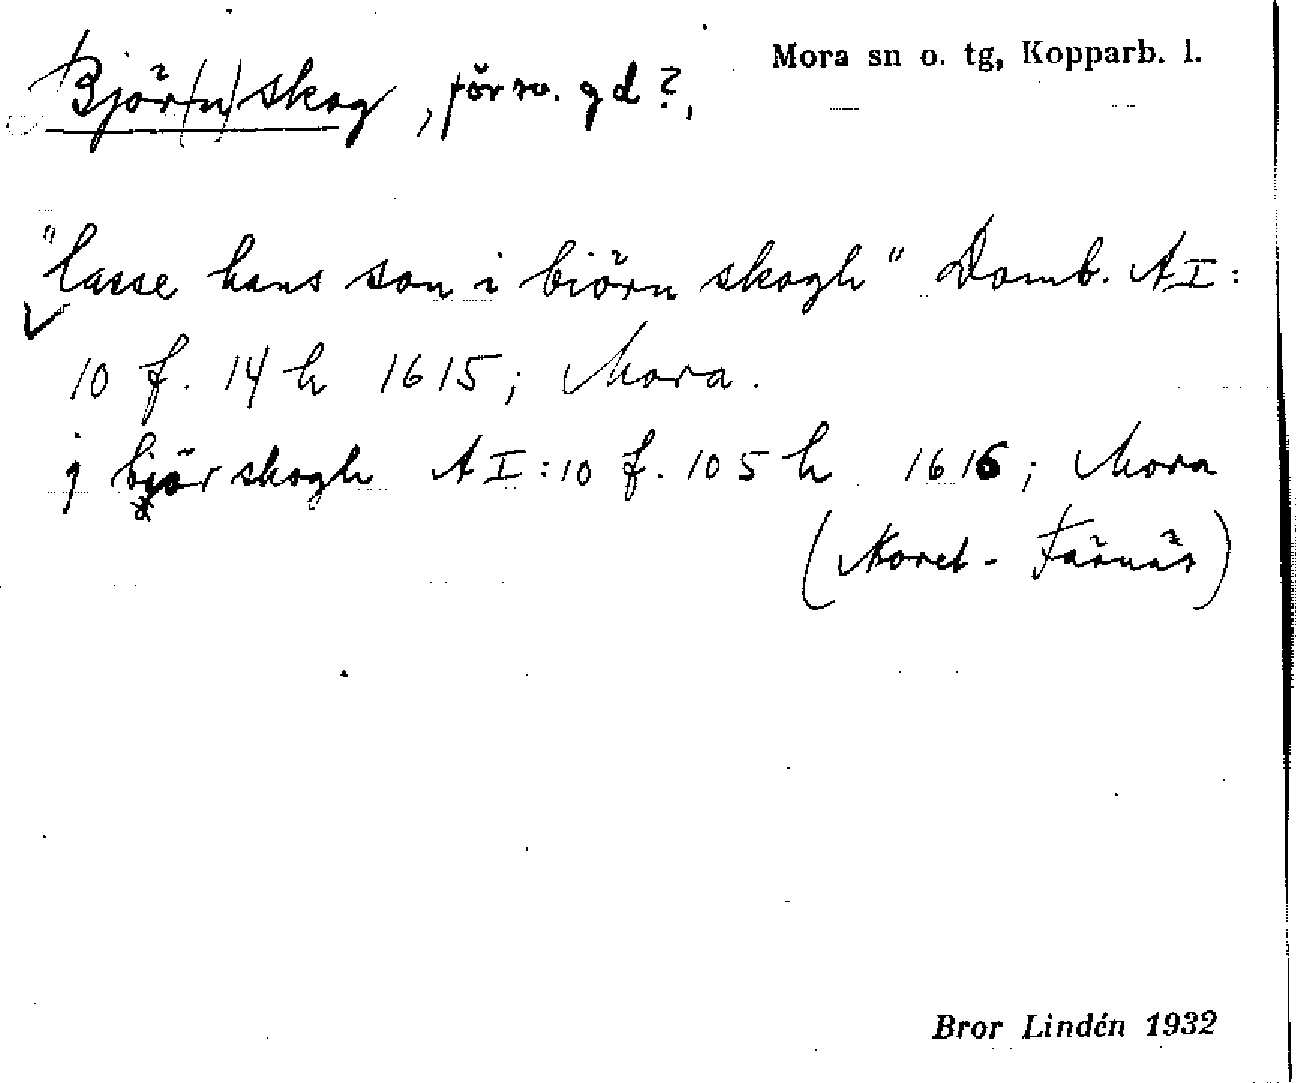 Björ(n)skog, försv. gd?,
Mora sn o. tg, Kopparb. l.
"lasse hans son i biörn skogh" Domb. A I:
10 f. 14 h 1615; Mora.
j björ skogh A I:10 f. 105 h 1616; Mora
(Noret - Färnäs)
Bror Lindén 1932